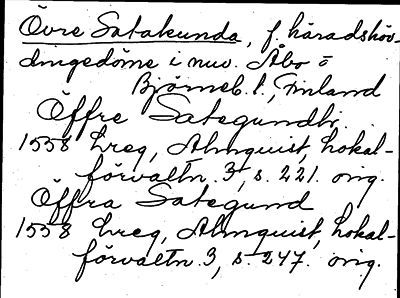 Övre Satakunda, f. häradshöv-
dingedöme i nuv. Åbo o
Björneb. l., Finland
Öffre Sategundh.
1558 hreg, Almquist, Lokal-
förvaltn. 3, s. 221. orig.
Öffra Sategund
1558 hreg, Almquist, Lokal-
förvaltn. 3, s. 247. orig.